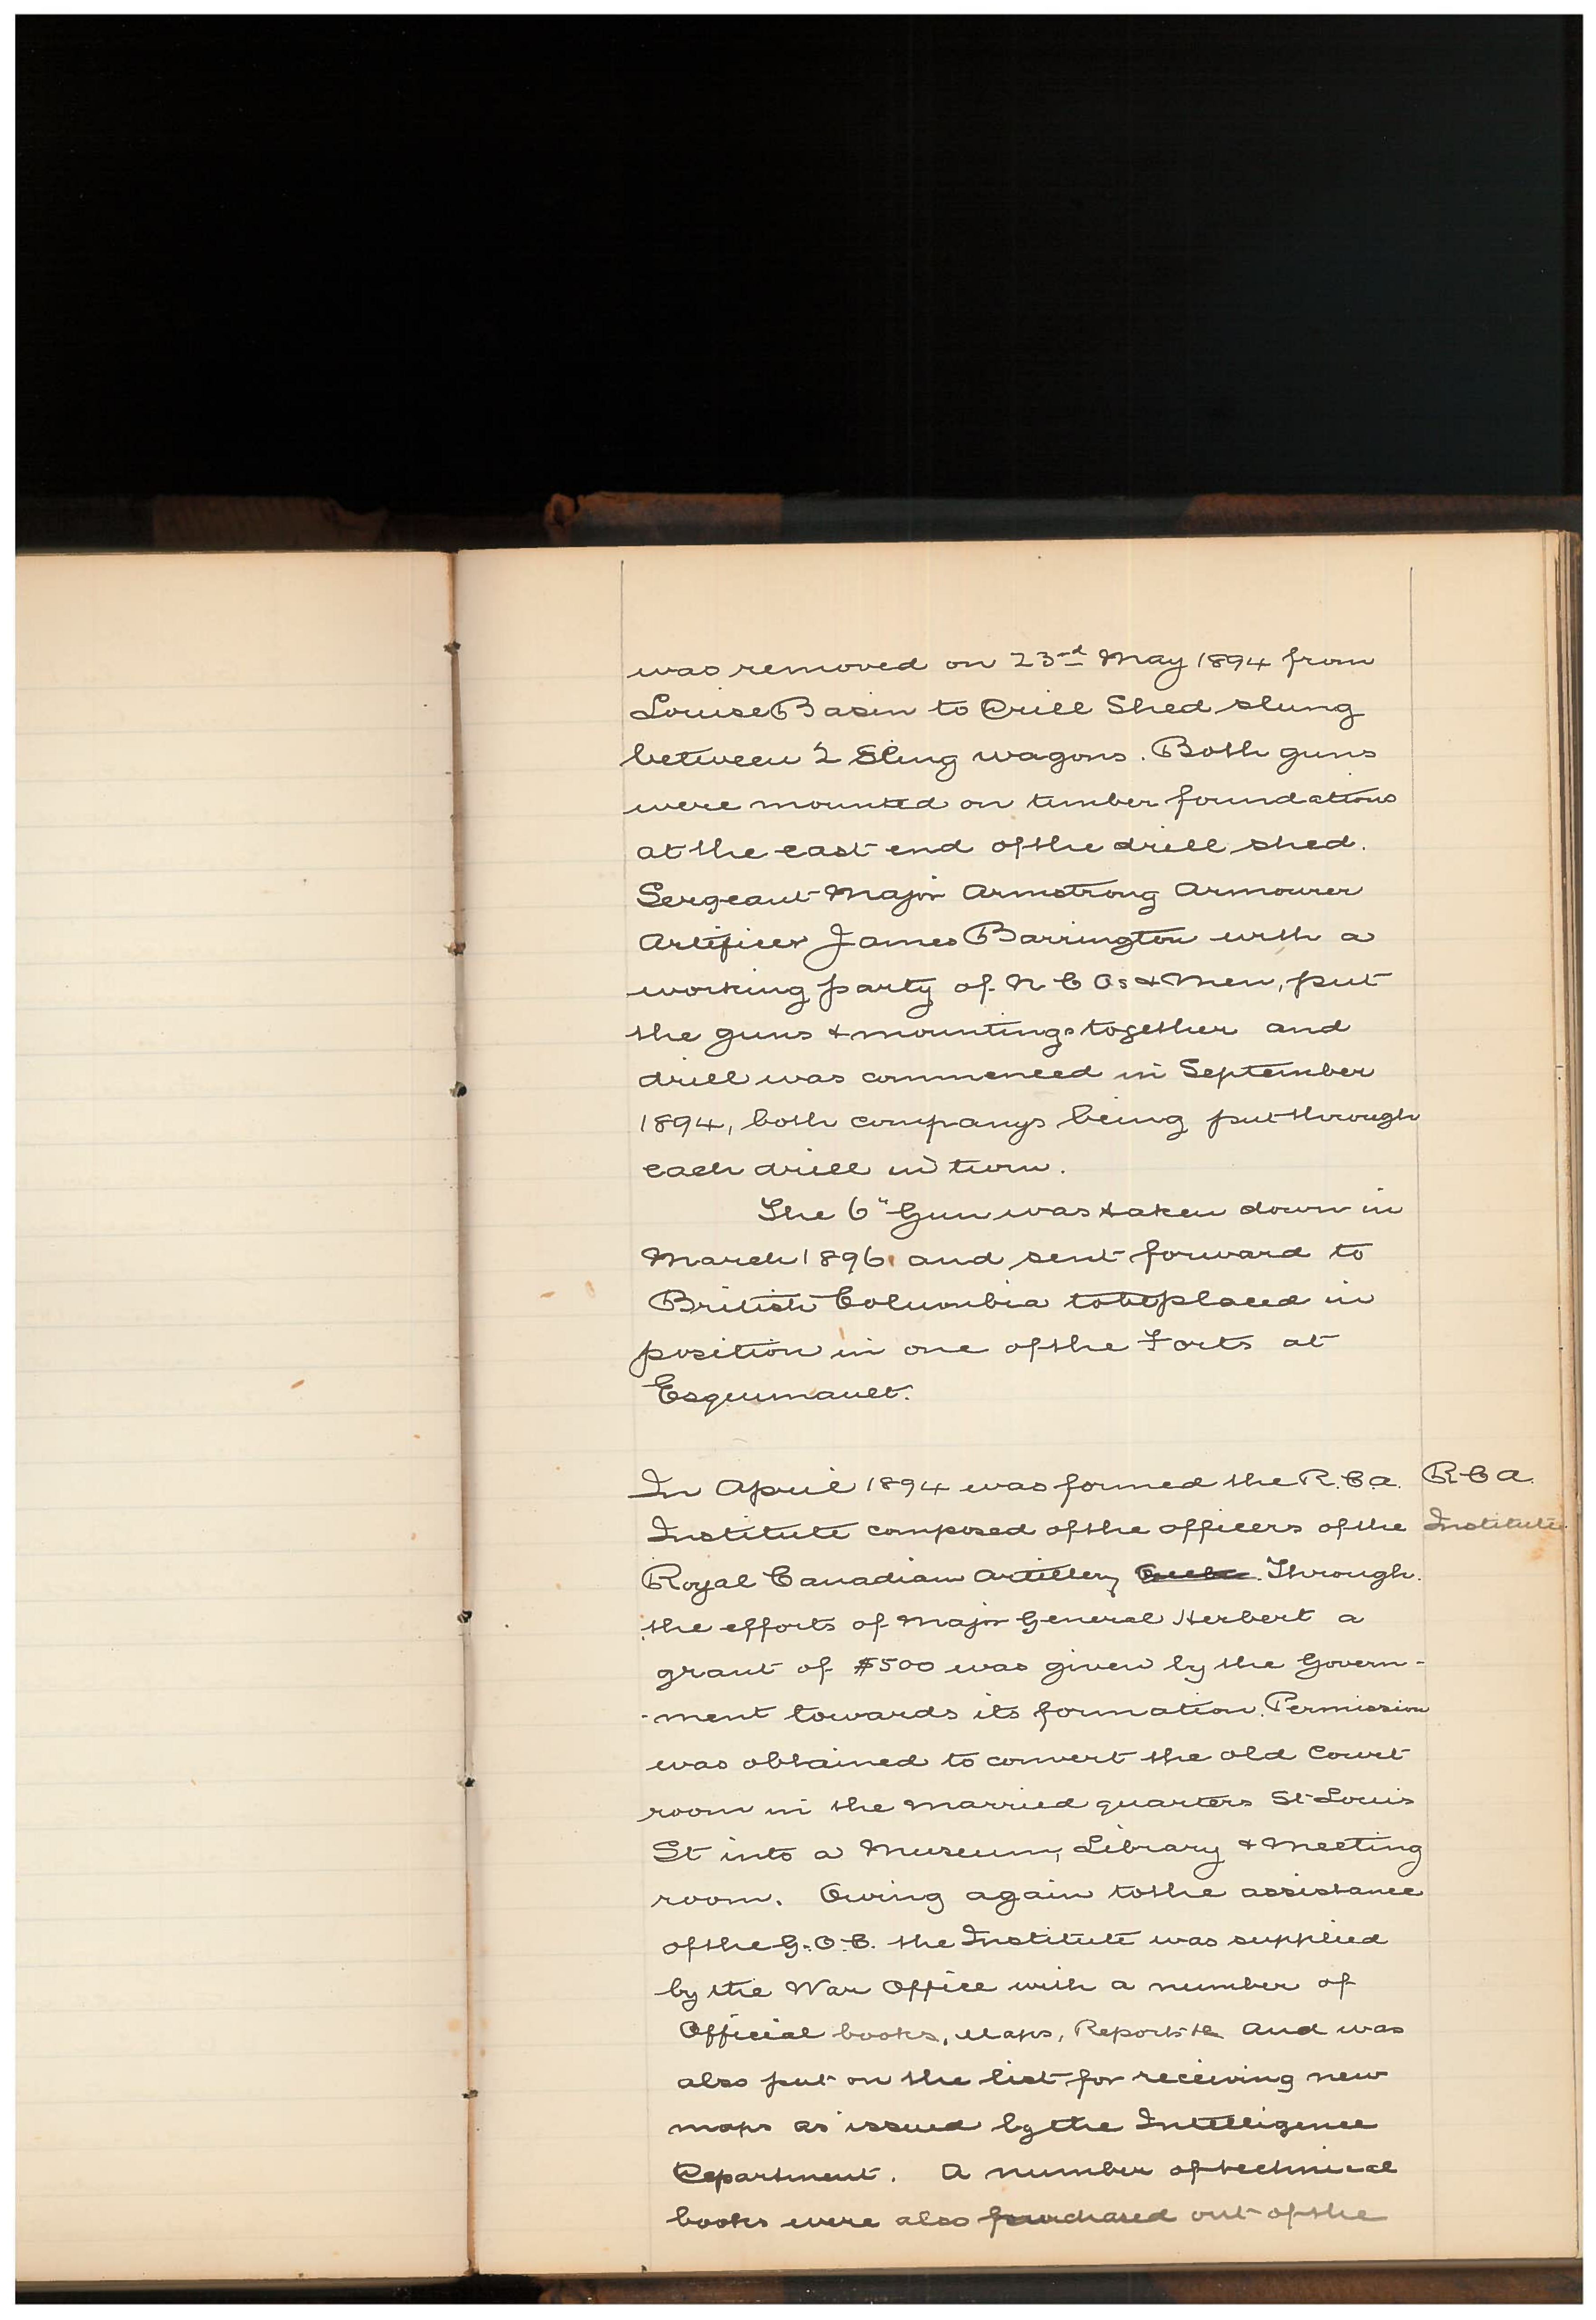 was removed on 23rd May 1894 from
Louise Basin to Drill Shed slung
between 2 Sling wagons. Both guns
were mounted on timber foundations
at the east end of the drill shed.
Sergeant Major Armstrong Armourer
Artificer James Barrington with a
working party of N C Os & Men, put
the guns & mountings together and
drill was commenced in September
1894, both companys being put through
each drill in turn.
The 6" Gun was taken down in
March 1896 and sent forward to
British Columbia to be placed in
position in one of the Forts at
Esquimault.
In April 1894 was formed the R.C.A. R C A.
Institute composed of the officers of the Institute
Royal Canadian Artillery Through
the efforts of Major General Herbert a
grant of $500 was given by the Govern-
-ment towards its formation. Permission
was obtained to convert the old Court
room in the married quarters St Louis
St into a Museum, Library & Meeting
room. Owing again to the assistance
of the G.O.C. the Institute was supplied
by the War Office with a number of
Official books, Maps, Reports &c and was
also put on the list for receiving new
maps as issued by the Intelligence
Department. A number of technical
books were also purchased out of the